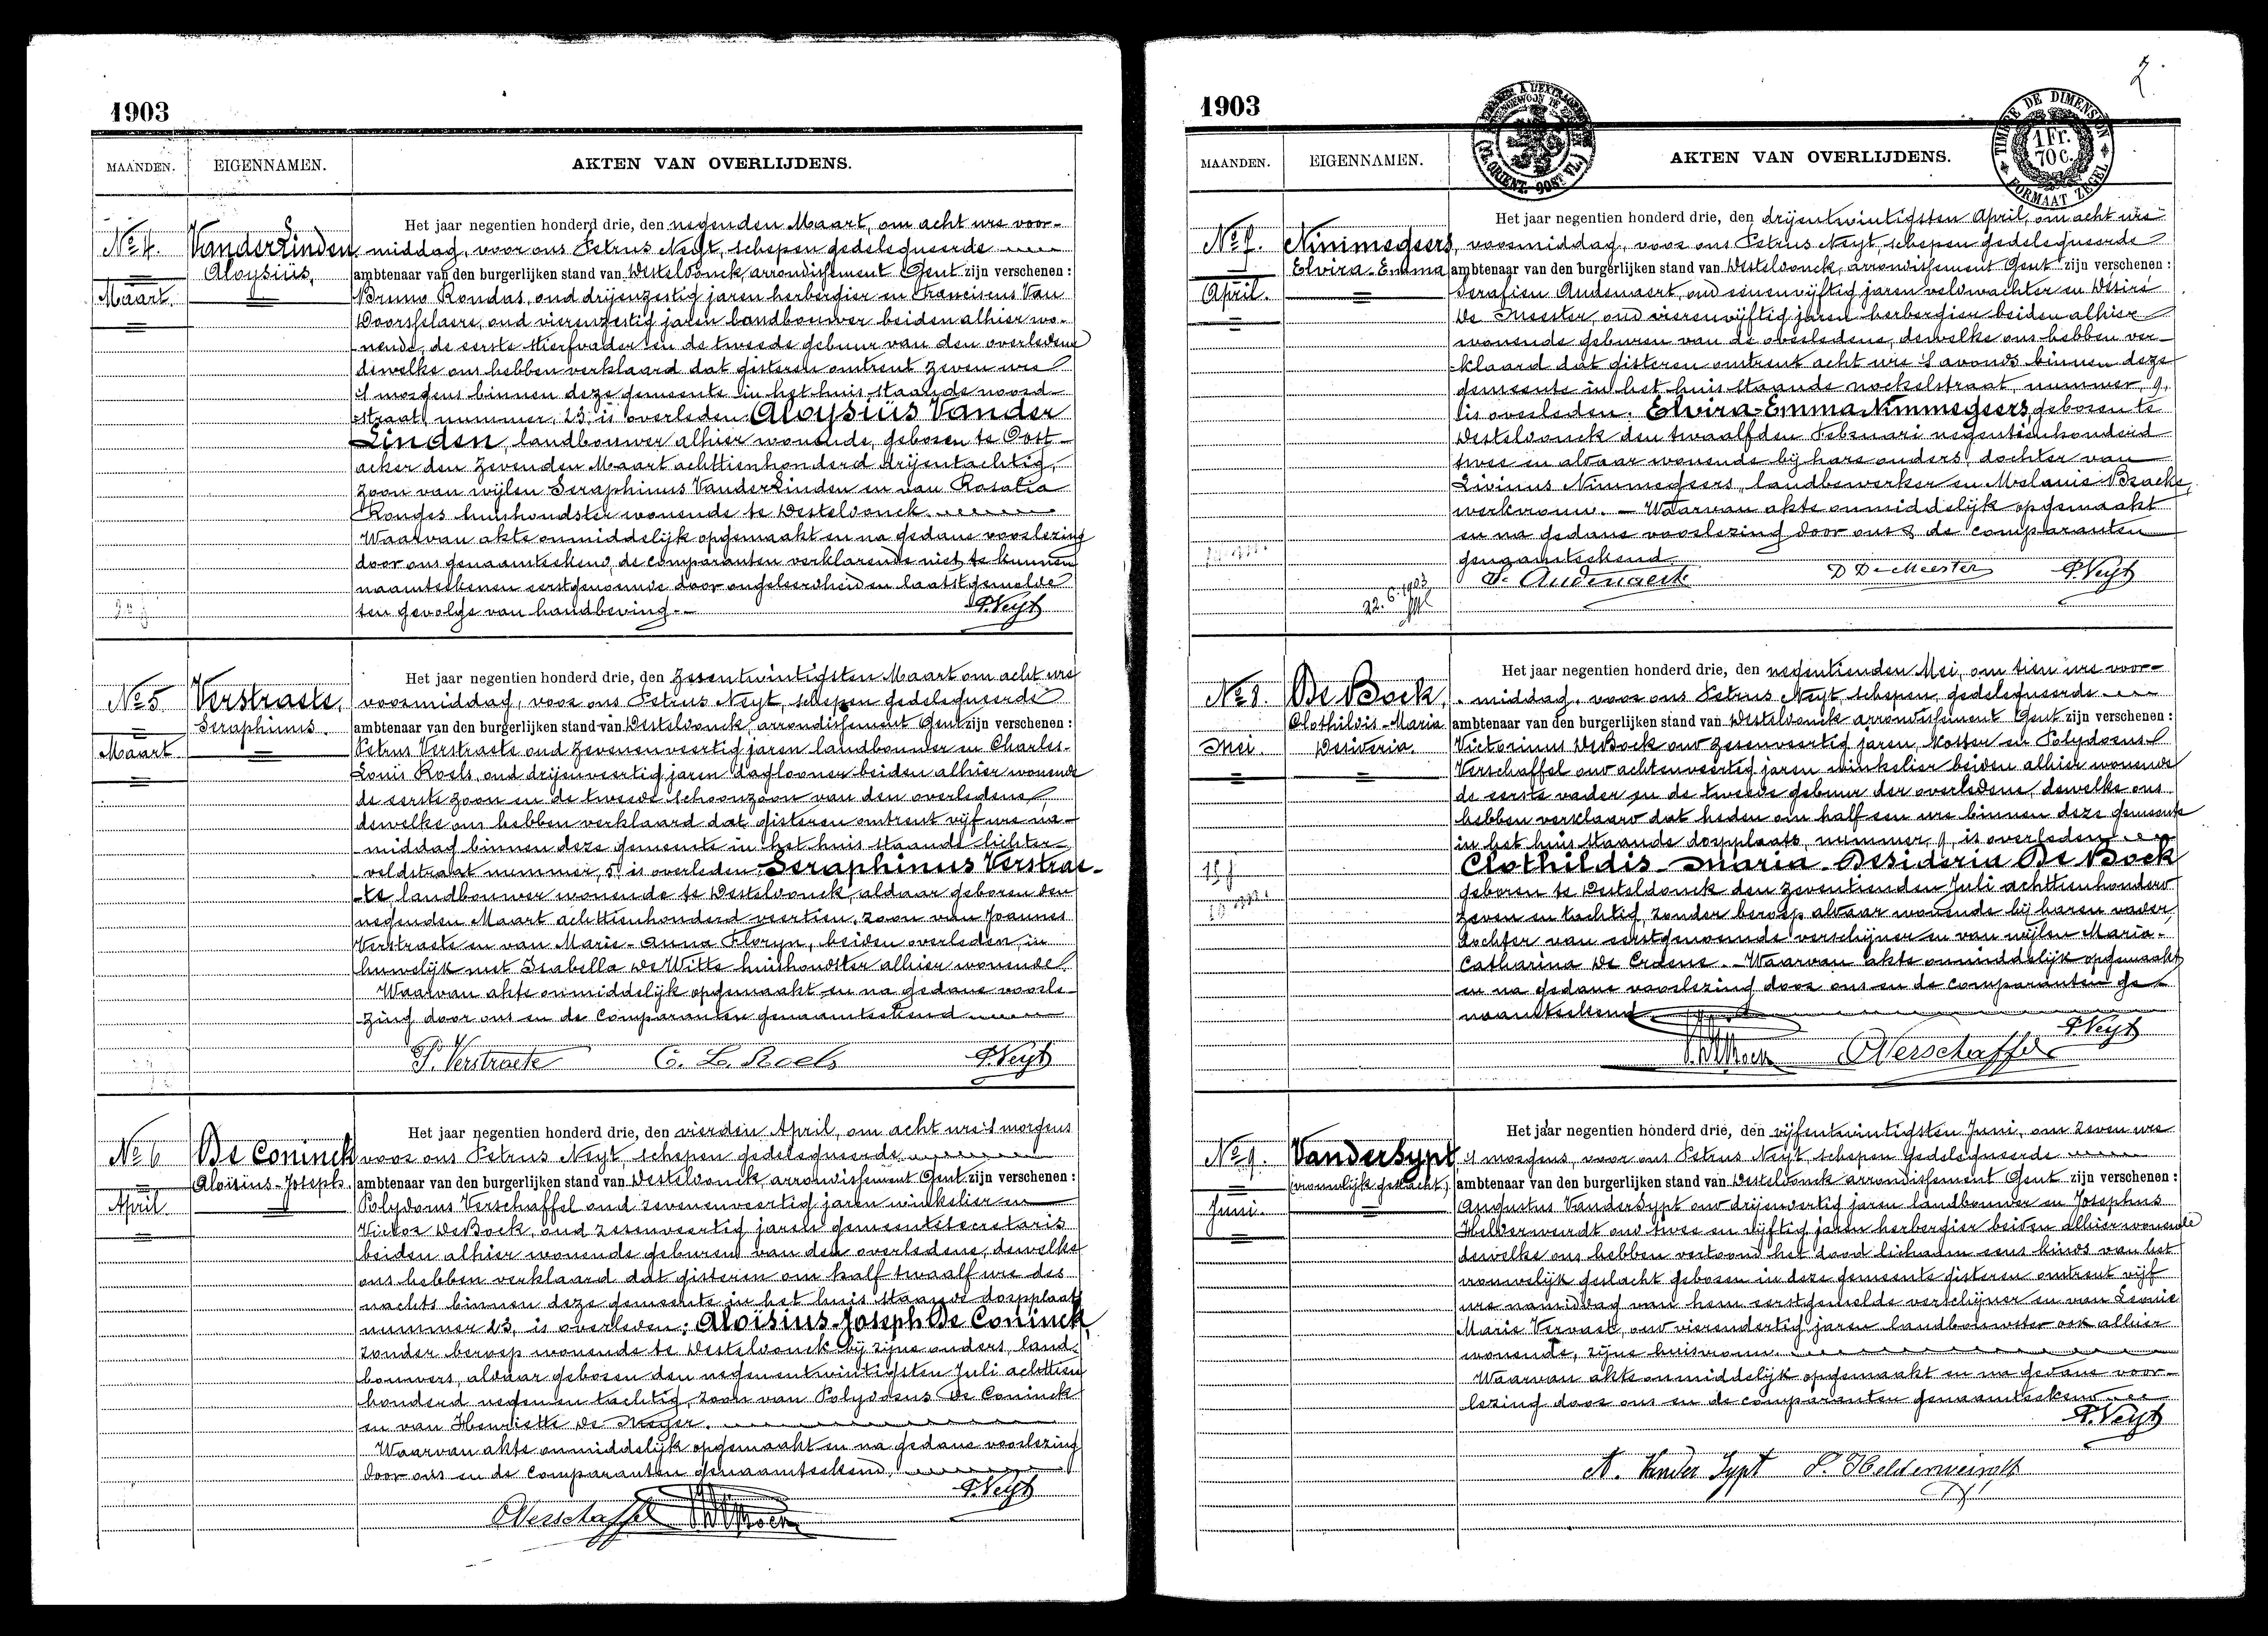 1903
MAANDEN. EIGENNAMEN. AKTEN VAN OVERLIJDENS.
No 4.
Maart.
VanderLinden
Aloysiüs,
Het jaar negentien honderd drie, den negenden Maart, om acht ure voor-
middag, voor ons Petrus Neyt, schepen gedelegueerde
ambtenaar van den burgerlijken stand van Desteldonck, arrondissement Gent zijn verschenen :
Bruno Rondas, oud drijenzestig jaren herbergier en Franciscus Van
Doorsselaere, oud vierenzestig jaren landbouwer beiden alhier wo-
nende, de eerste stiefvader en de tweede gebuur van den overledene
dewelke ons hebben verklaard dat gisteren omtrent zeven ure
's morgens binnen deze gemeente in het huis staande noord-
straat, nummer, 23, is overleden Aloysiüs Vander
Linden, landbouwer alhier wonende, geboren te Oost-
acker den zevenden Maart achttienhonderd drijentachtig,
zoon van wijlen Seraphinus VanderLinden en van Rosalia
Ronges huishoudster wonende te Desteldonck.
Waarvan akte onmiddelijk opgemaakt en na gedane voorlezing
door ons genaamteekend, de comparanten verklarende niet te kunnen
naamteekenen eerstgenoemde door ongeleerdheid en laatstgemelde
ten gevolge van handbeving.-
P. Neyt
No 5
Maart
Verstraete,
Seraphinus.
Het jaar negentien honderd drie, den zesentwintigsten Maart om acht ure
voormiddag, voor ons Petrus Neyt, schepen gedelegueerde
ambtenaar van den burgerlijken stand van Desteldonck, arrondissement Gent zijn verschenen :
Petrus Verstraete oud zevenenveertig jaren landbouwer en Charles-
Louis Roels, oud drijenveertig jaren daglooner beiden alhier wonende
de eerste zoon en de tweede schoonzoon van den overledene,
dewelke ons hebben verklaard dat gisteren omtrent vijf ure na-
middag binnen deze gemeente in het huis staande lichter-
veldstraat nummer, 5, is overleden Seraphinus Verstrae-
te, landbouwer wonende te Desteldonck, aldaar geboren den
negenden Maart achttienhonderd veertien, zoon van Joannes
Verstraete en van Marie-Anna Floryn, beiden overleden, in
huwelijk met Isabella De Witte huishoudster alhier wonende.
Waarvan akte onmiddelijk opgemaakt en na gedane voorle-
zing door ons en de comparanten genaamteekend
P. Verstraete C. L. Roels P. Neyt
No 6
April
De Coninck
Aloïsius-Joseph.
Het jaar negentien honderd drie, den vierden April, om acht ure 's morgens
voor ons Petrus Neyt, schepen gedelegueerde
ambtenaar van den burgerlijken stand van Desteldonck, arrondissement Gent zijn verschenen :
Polydorus Verschaffel oud zevenenveertig jaren winkelier en
Victor DeBock, oud zesenveertig jaren gemeentesecretaris
beiden alhier wonende geburen van den overledene, dewelke
ons hebben verklaard dat gisteren om half twaalf ure des
nachts binnen deze gemeente in het huis staande dorpplaats
nummer 23, is overleden : Aloïsius-Joseph De Coninck,
zonder beroep wonende te Desteldonck bij zijne ouders, land-
bouwers, aldaar geboren den negenentwintigsten Juli achttien
honderd negenen tachtig, zoon van Polydorus De Coninck
en van Henriette De Meyer.
Waarvan akte onmiddelijk opgemaakt en na gedane voorlezing
door ons en de comparanten genaamteekend.
P. Neyt
PVerschaffel V. DeBock
2.
1903
TIMBRE DE DIMENSION
1 Fr.
70 c.
FORMAAT ZEGEL
MAANDEN. EIGENNAMEN. AKTEN VAN OVERLIJDENS.
No 7.
April.
Nimmegeers,
Elvira-Emma
Het jaar negentien honderd drie, den drijentwintigsten April, om acht ure
voormiddag, voor ons Petrus Neyt, schepen gedelegueerde
ambtenaar van den burgerlijken stand van Desteldonck, arrondissement Gent zijn verschenen :
Serafien Audenaert, oud eenenvijftig jaren veldwachter en Desiré
De Meester, oud vierenvijftig jaren herbergier beiden alhier
wonende geburen van de overledene, dewelke ons hebben ver-
klaard dat gisteren omtrent acht ure 's avonds binnen deze
gemeente in het huis staande nockelstraat, nummer, 9,
is overleden. Elvira-Emma Nimmegeers, geboren te
Desteldonck den twaalfden Februari negentienhonderd
twee en aldaar wonende bij hare ouders, dochter van
Livinus Nimmegeers, landbewerker en Melanie Braeke,
werkvrouw. - Waarvan akte onmiddelijk opgemaakt
en na gedane voorlezing door ons & de comparanten
genaamteekend
S. Audenaert D DeMeester P. Neyt
22.6.1903
No 8.
Mei.
De Bock,
Clothildis-Maria
Desideria.
Het jaar negentien honderd drie, den negentienden Mei, om tien ure voor-
middag, voor ons Petrus Neyt, schepen, gedelegueerde
ambtenaar van den burgerlijken stand van Desteldonck arrondissement Gent zijn verschenen :
Victorinus DeBock oud zesenveertig jaren, koster en Polydorus
Verschaffel oud achtenveertig jaren winkelier beiden alhier wonende
de eerste vader en de tweede gebuur der overledene, dewelke ons
hebben verklaard dat heden om half een ure binnen deze gemeente
in het huis staande dorpplaats, nummer, 9, is overleden
Clothildis-Maria-Desideria De Bock
geboren te Desteldonck den zeventienden Juli achttienhonderd
zeven en tachtig, zonder beroep aldaar wonende bij haren vader,
dochter van eerstgenoemde verschijner en van wijlen Maria-
Catharina De Craene. - Waarvan akte onmiddelijk opgemaakt
en na gedane voorlezing door ons en de comparanten ge-
naamteekend
P. Neyt
V. DeBock PVerschaffel
No 9.
Juni.
VanderSypt
(vrouwlijk geslacht.)
Het jaar negentien honderd drie, den vijfentwintigsten Juni, om zeven ure
's morgens, voor ons Petrus Neyt, schepen Gedelegueerde
ambtenaar van den burgerlijken stand van Desteldonck arrondissement Gent zijn verschenen :
Augustus VanderSypt oud drijenvertig jaren landbouwer en Josephus
Helderweirdt oud twee en vijftig jaren herbergier beiden alhier wonende
dewelke ons hebben vertoond het dood lichaam eens kinds van het
vrouwelijk geslacht geboren in deze gemeente gisteren omtrent vijf
ure namiddag van hem eerstgemelde verschijner en van Leonie
Marie Vervaet, oud vierendertig jaren landbouwster ook alhier
wonende, zijne huisvrouw.
Waarvan akte onmiddelijk opgemaakt en na gedane voor-
lezing door ons en de comparanten genaamteekend
P. Neyt
A. Vander Sypt J. Helderweirdt